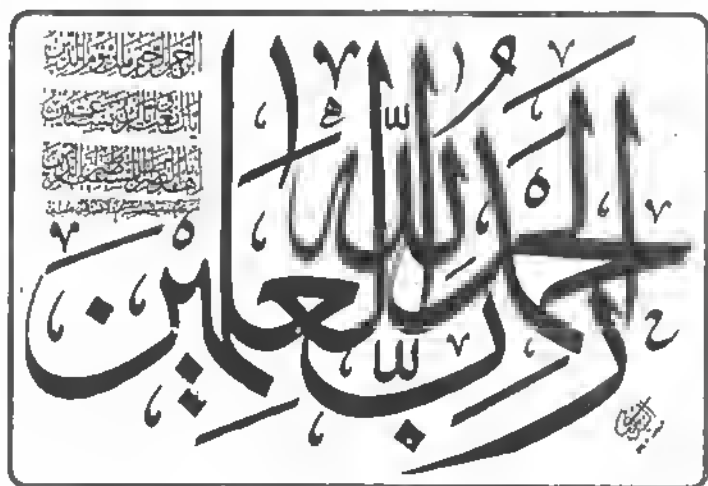 الحمد لله رب العلمين
الرحمن الرحيم ملك يوم الدين
اياك نعبد واياك نستعين
اهدنا الصراط المستقيم صراط الذين